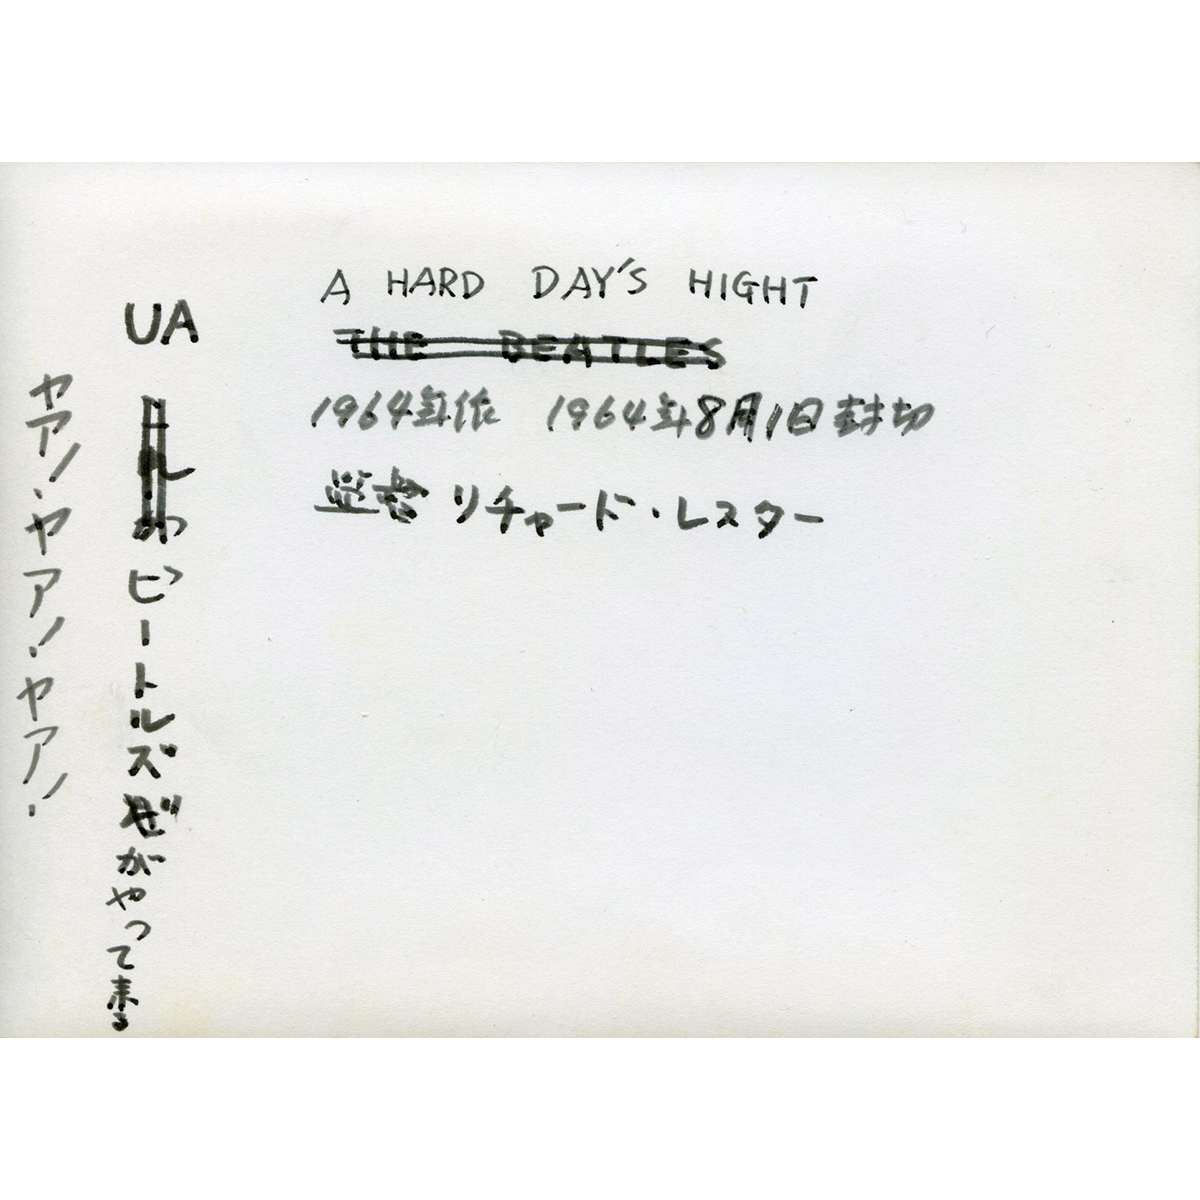 A HARD DAY'S HIGHT
UA
THE BEATLES
1964年作 1964年8月1日封切
監督 リチャード・レスター
ビートルズがやって来る
ヤア！ヤア！ヤア！